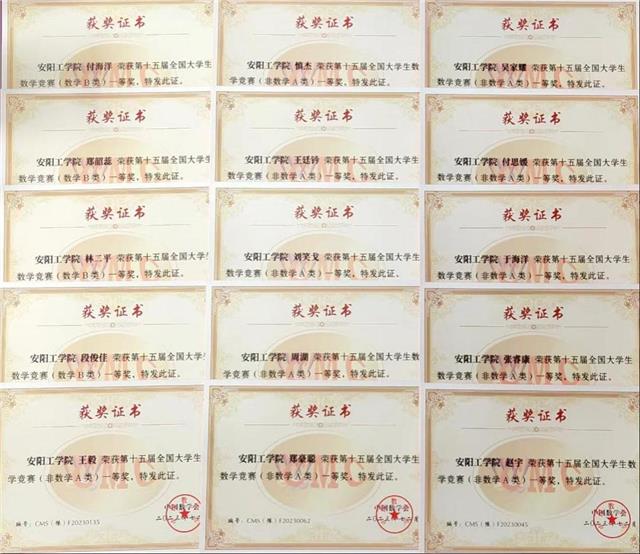 获奖证书
安阳工学院 付海洋 荣获第十五届全国大学生
数学竞赛（数学B类）一等奖，特发此证。
获奖证书
安阳工学院 慎杰 荣获第十五届全国大学生数
学竞赛（非数学A类）一等奖，特发此证。
获奖证书
安阳工学院 吴家耀 荣获第十五届全国大学生
数学竞赛（非数学A类）一等奖，特发此证。
获奖证书
安阳工学院 郑韶蕊 荣获第十五届全国大学生
数学竞赛（数学B类）一等奖，特发此证。
获奖证书
安阳工学院 王廷钤 荣获第十五届全国大学生
数学竞赛（非数学A类）一等奖，特发此证。
获奖证书
安阳工学院 付思媛 荣获第十五届全国大学生
数学竞赛（非数学A类）一等奖，特发此证。
获奖证书
安阳工学院 林二平 荣获第十五届全国大学生
数学竞赛（数学B类）一等奖，特发此证。
获奖证书
安阳工学院 刘笑戈 荣获第十五届全国大学生
数学竞赛（非数学A类）一等奖，特发此证。
获奖证书
安阳工学院 于海洋 荣获第十五届全国大学生
数学竞赛（非数学A类）一等奖，特发此证。
获奖证书
安阳工学院 段俊佳 荣获第十五届全国大学生
数学竞赛（数学B类）一等奖，特发此证。
获奖证书
安阳工学院 周湖 荣获第十五届全国大学生数
学竞赛（非数学A类）一等奖，特发此证。
获奖证书
安阳工学院 张睿康 荣获第十五届全国大学生
数学竞赛（非数学A类）一等奖，特发此证。
获奖证书
安阳工学院 王毅 荣获第十五届全国大学生数
学竞赛（非数学A类）一等奖，特发此证。
中国数学会
编号：CMS（豫）F20230135
获奖证书
安阳工学院 郑豪聪 荣获第十五届全国大学生
数学竞赛（非数学A类）一等奖，特发此证。
中国数学会
编号：CMS（豫）F20230062
获奖证书
安阳工学院 赵宇 荣获第十五届全国大学生数
学竞赛（非数学A类）一等奖，特发此证。
中国数学会
编号：CMS（豫）F20230045